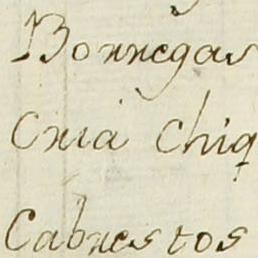 Borregas
Cria chiq
Cabrestos